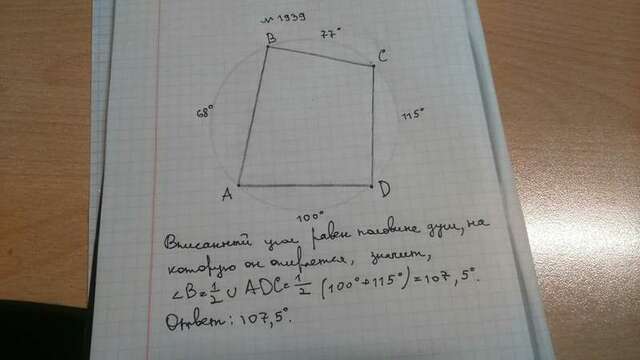 № 1939
B
77°
C
68°
115°
A
D
100°
Вписанный угол равен половине дуги, на
которую он опирается, значит,
∠B=1/2 ∪ ADC=1/2 (100°+115°)=107,5°.
Ответ: 107,5°.